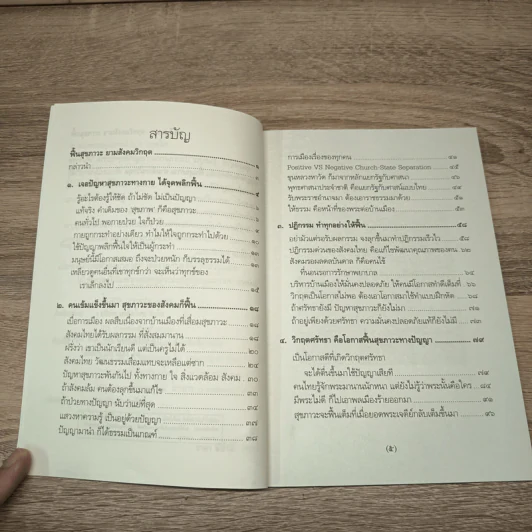 สารบัญ
ฟื้นสุขภาวะ ยามสังคมวิกฤต ๑
กล่าวนำ ๑
๑. เจอปัญหาสุขภาวะทางกาย ได้จุดพลิกฟื้น ๕
รู้อะไรต้องรู้ให้ชัด ถ้าไม่ชัด ไม่เป็นปัญญา
แท้จริง คำเดิมของ 'สุขภาพ' ก็คือสุขภาวะ
คนทั่วไป พอกายป่วย ใจก็ป่วย
กายถูกกระทำอย่างเดียว ทำไมให้ใจถูกกระทำไปด้วย
ใช้ปัญญาพลิกฟื้นใจให้เป็นผู้กระทำ
มนุษย์นี้มีโอกาสเสมอ ถึงจะป่วยหนัก ก็บรรลุธรรมได้
เหลียวดูคนอื่นที่เขาทุกข์กว่า จะเห็นว่าทุกข์ของ
เราเล็กลงไป ๑๕
๒. คนเข้มแข็งขึ้นมา สุขภาวะของสังคมก็ฟื้น ๑๘
เบื่อการเมือง ผลสืบเนื่องจากบ้านเมืองที่เสื่อมสุขภาวะ
สังคมไทยได้รับผลกรรม ที่สั่งสมมานาน
ฝรั่งว่า เขาเป็นนักเรียนดี แต่เป็นครูไม่ได้ ๒๐
สังคมไทย วัฒนธรรมเสื่อมแทบจะเหลือแต่ซาก
ปัญหาสุขภาวะพันกันไป ทั้งทางกาย ใจ สิ่งแวดล้อม สังคม ๓๐
ถ้าสังคมล้ม คนต้องลุกขึ้นมาแก้ไข ๓๓
ถ้าป่วยทางปัญญา นับว่าแย่ที่สุด ๓๕
แสวงหาความรู้ เป็นอยู่ด้วยปัญญา ๓๗
ปัญญามานำ ก็ได้ธรรมเป็นเกณฑ์ ๓๘
การเมืองเรื่องของทุกคน ๔๑
Positive VS Negative Church-State Separation ๔๕
พุทธศาสนาประจำชาติ คือแยกรัฐกับศาสน์แบบไทย
รับพระราชอำนาจมา ต้องเอาราชธรรมมาด้วย
ให้ธรรม คือหน้าที่ของพระต่อบ้านเมือง ๕๓
๓. ปฏิกรรม ทำทุกอย่างให้ฟื้น ๕๘
อย่ามัวแต่รอรับผลกรรม จงลุกขึ้นมาทำปฏิกรรมเร็วไว
ปฏิกรรมด่วนของสังคมไทย คือแก้ไขพัฒนาคุณภาพของคน
สังคมรอผลดลบันดาล ก็คือคนไข้
ที่นอนรอการรักษาพยาบาล
บริหารบ้านเมืองให้มั่นคงปลอดภัย ให้คนมีโอกาสทำดีเต็มที่
วิกฤตเป็นโอกาสไม่พอ ต้องเอาโอกาสมาใช้ทำแบบฝึกหัด ๖๘
ถ้าศรัทธายังมี ปัญหาสุขภาวะก็ยังไม่มา
ถ้าอยู่เพียงด้วยศรัทธา ความมั่นคงปลอดภัยแท้ก็ยังไม่มี ๗๓
๔. วิกฤตศรัทธา คือโอกาสฟื้นสุขภาวะทางปัญญา ๗๙
เป็นโอกาสดีที่เกิดวิกฤตศรัทธา
จะได้ตื่นขึ้นมาใช้ปัญญาเสียที
คนไทยรู้จักพระมานานนักหนา แต่ยังไม่รู้ว่าพระนั้นคือใคร ๘๔
มีพระไม่ดี ก็ไปเอาพลเมืองร้ายออกมา
สุขภาวะจะฟื้นเต็มที่เมื่อยอดพระเจดีย์กลับเต็มขึ้นมา ๙๖
(๕)